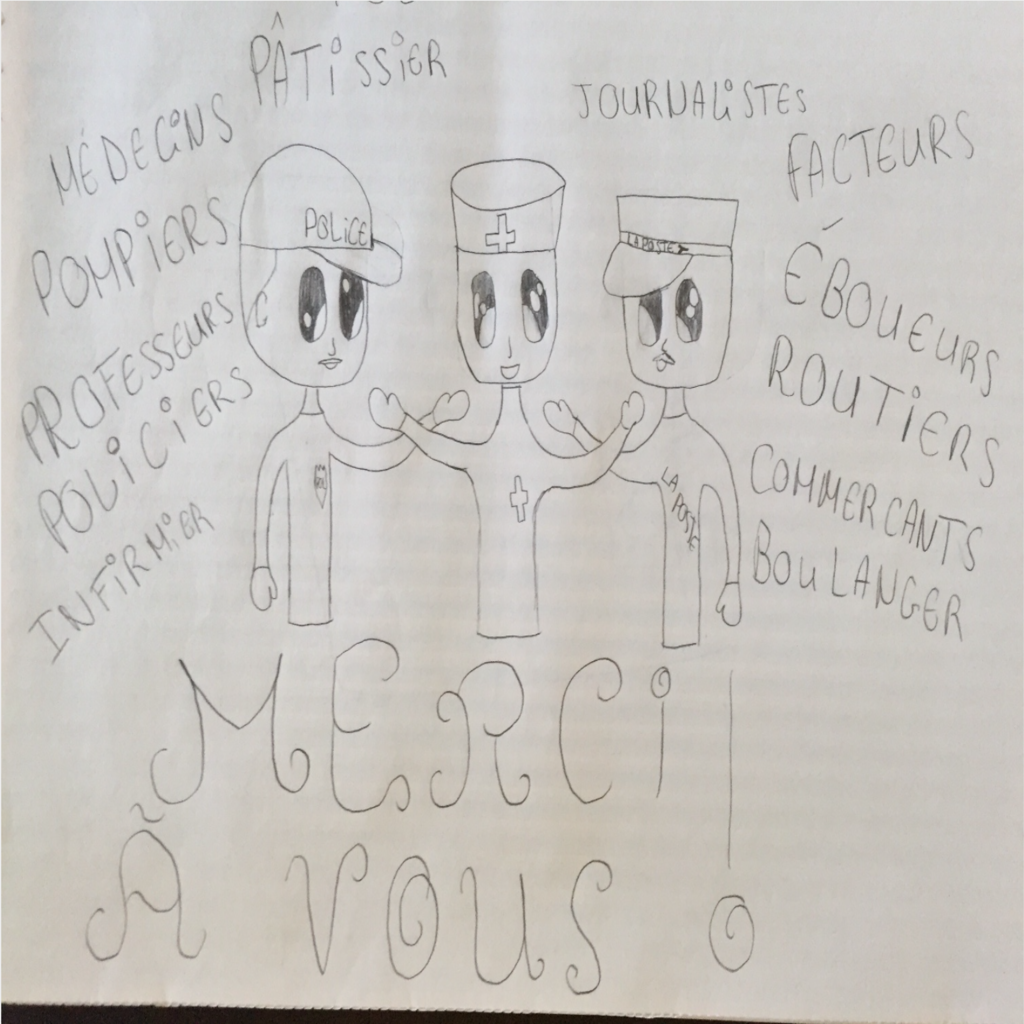 PÂTISSIER
JOURNALISTES
MÉDECINS
FACTEURS
POMPIERS
POLICE
LA POSTE
ÉBOUEURS
PROFESSEURS
ROUTIERS
POLICIERS
COMMERCANTS
LA POSTE
INFIRMIER
BOULANGER
MERCI !
À VOUS